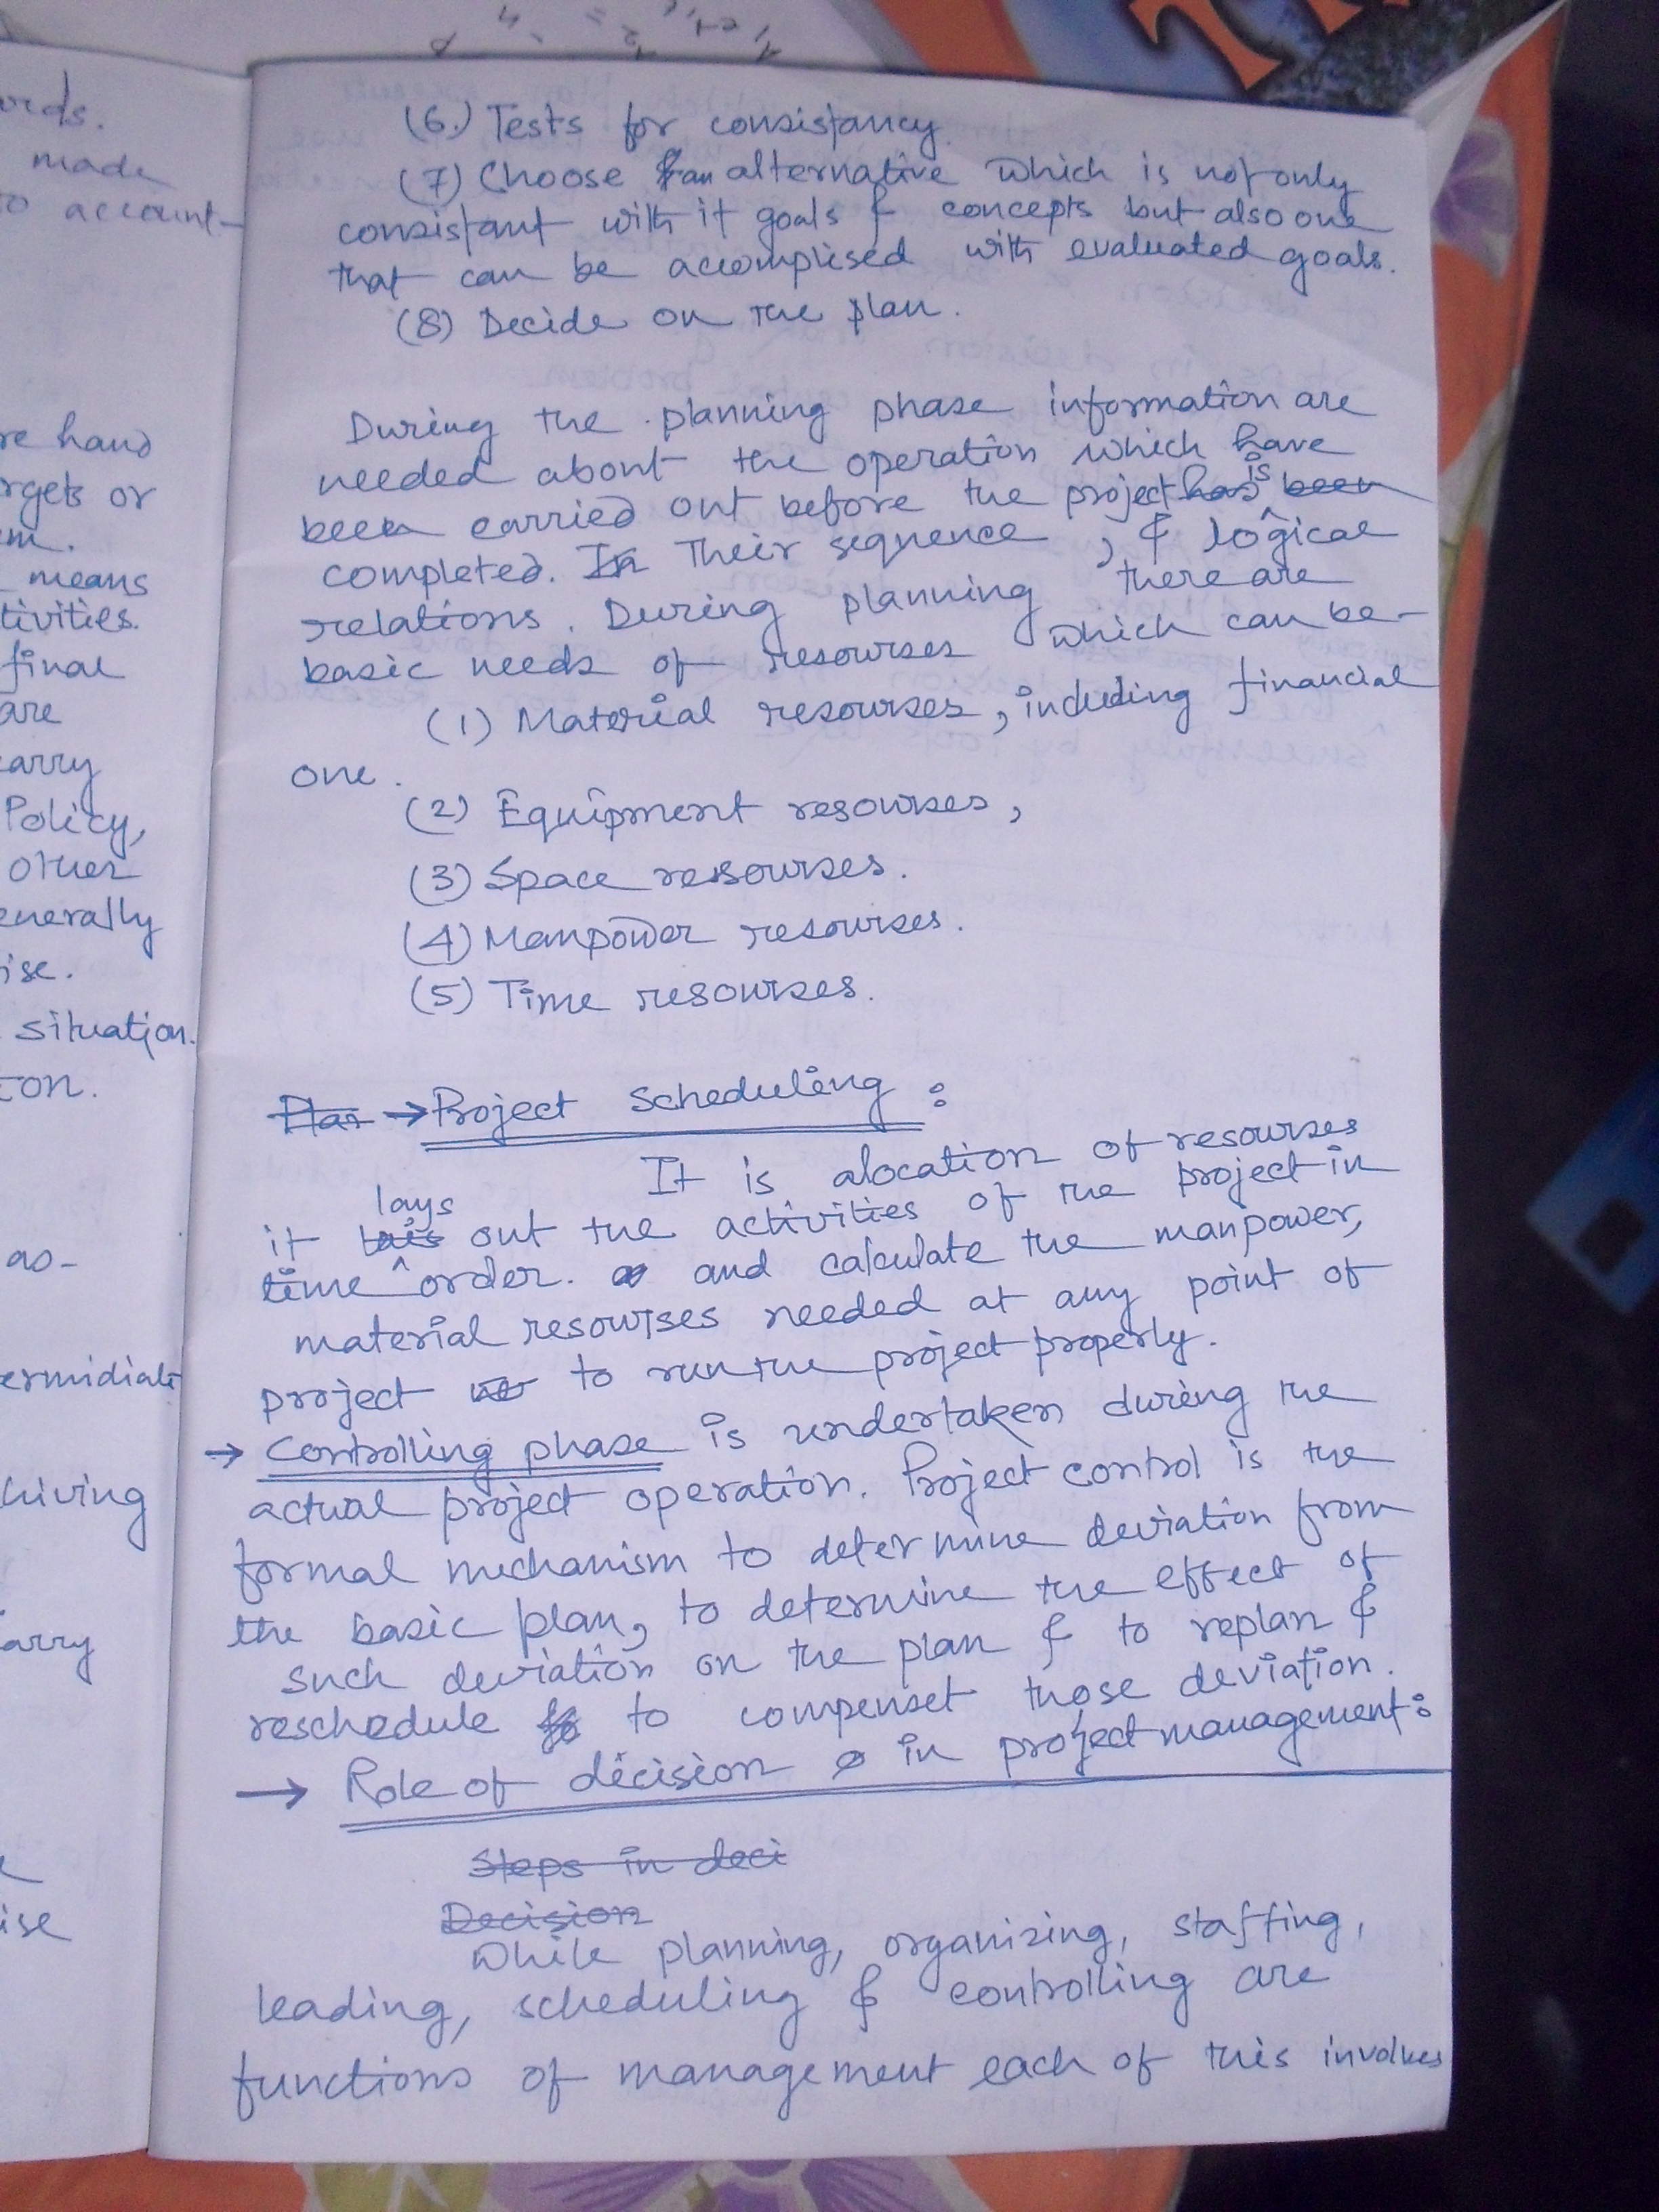 (6.) Tests for consistancy
(7) Choose an alternative which is not only
consistant with it goals & concepts but also one
that can be accomplised with evaluated goals.
(8) Decide on the plan.
During the planning phase information are
needed about the operation which have
been carried out before the project has is been
completed. In Their sequence, & logical
relations. During planning there are
basic needs of resourses which can be-
(1) Material resourses, including financial
one.
(2) Equipment resourses,
(3) Space resourses.
(4) Manpower resourses.
(5) Time resourses.
Plan → Project scheduling :
It is alocation of resourses
lays
it out the activities of the project in
time order. and calculate the manpower,
material resourses needed at any point of
project to run the project properly.
→ Controlling phase is undertaken during the
actual project operation. Project control is the
formal mechanism to determine deviation from
the basic plan, to determine the effect of
such deviation on the plan & to replan &
reschedule to compenset those deviation.
→ Role of decision in project management:
Steps in deci
Decision
While planning, organizing, staffing,
leading, scheduling & controlling are
functions of management each of this involves
made
to account-
hand
or
means
final
are
Policy,
other
situation.
as-